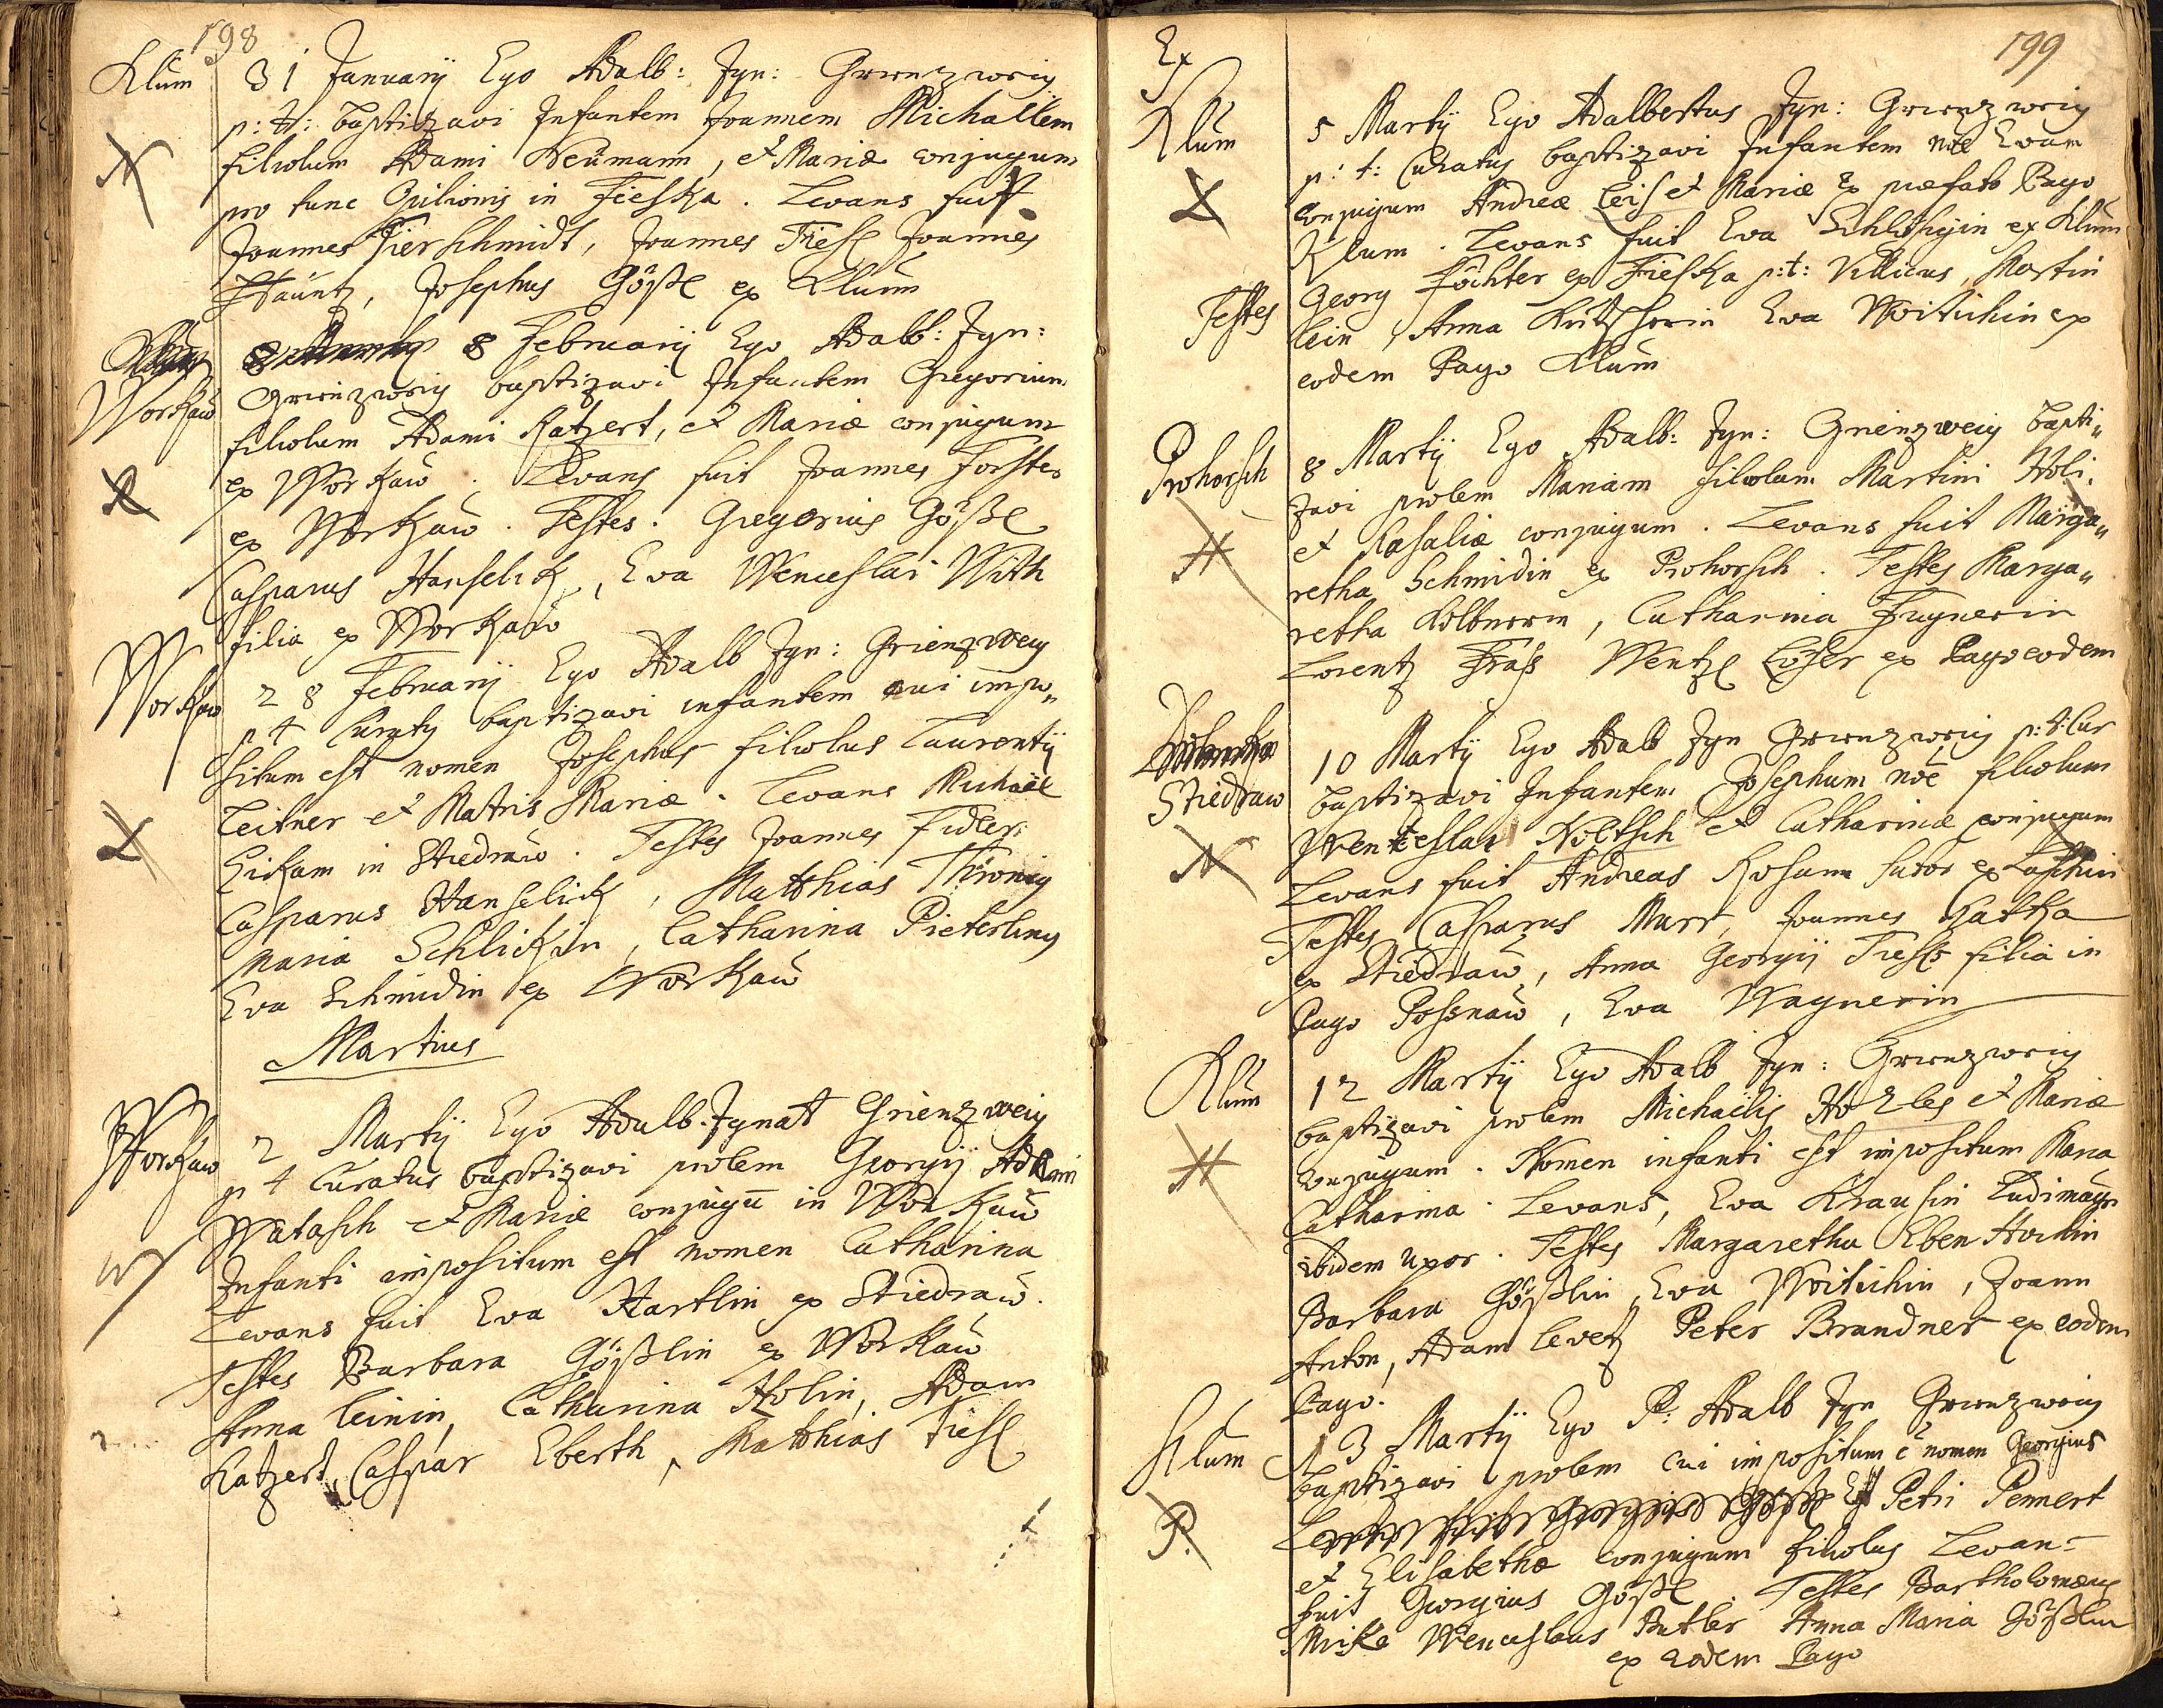 198
Klum 31 Januarij Ego Adalb: Ign: Grienzweig
p: t: baptizavi Infantem Joannem Michaëlem
filiolum Adami Neumann, et Mariæ conjugum
pro tunc Opilionis in Tieska. Levans fuit
Joannes Fierschmidt, Joannes Tiesl Joannes
Josephus Gößl ex Klum
8 Februarij Ego Adalb: Ign:
Workaw Grienzweig baptizavi Infantem Gregorium
filiolum Adami Katzert, et Mariæ conjugum
ex Workaw. Levans fuit Joannes Forster
ex Workaw. Testes. Gregorius Gößl
Casparus Hanselick, Eva Wenceslai With
filia ex Workaw
Workaw 28 Februarij Ego Adalb Ign: Grienzweig
p t Curatus baptizavi infantem cui impo„
situm est nomen Josephus filiolus Laurentij
Leitner et Matris Mariæ. Levans Michaël
in Stiedraw. Testes Joannes Fidler
Casparus Hanselick, Matthias Thronig
Maria Schlickin, Catharina Pieterling
Eva Schmidin ex Workaw
Martius
Workaw 2 Martij Ego Adalb. Ignat Grienzweig
p t Curatus baptizavi prolem Georgij Adami
Watasch et Mariæ conjugū in Workaw
Infanti impositum est nomen Catharina
Levans fuit Eva Hartlin ex Stiedraw.
Testes Barbara Gößlin ex Workaw
Anna Leinin, Catharina Holin, Adam
Katzert, Caspar Eberth, Matthias Tiesl
199
Ex
Klum 5 Martij Ego Adalbertus Ign: Grienzweig
p: t: Curatus baptizavi Infantem noe Evam
conjugum Andreæ Leis et Mariæ ex præfato Pago
Klum. Levans fuit Eva ex Klum
Testes Georg Fächter ex Tieska p: t: Villicus, Martin
Lein, Anna Eva Woitichin ex
eodem Pago Klum
Prohorsch 8 Martij Ego Adalb: Ign: Grienzweig bapti„
zavi prolem Mariam filiolam Martini Holi.
et Rosaliæ conjugum. Levans fuit Marga„
retha Schmidin ex Prohorsch. Testes Marga„
retha Catharina Frygnerin
Lorentz Frass Wentzl Löser ex Pago eodem
Stiedraw 10 Martij Ego Adalb Ign Grienzweig p: t: Cur
baptizavi Infantem Josephum noe filiolum
Wenceslai Nobtsch et Catharinæ conjugum
Levans fuit Andreas Rosam sutor ex
Testes Casparus Marr, Joannes Katka
ex Stiedraw, Anna Georgij Tiesl filia in
Pago Possnaw, Eva Wagnerin
Klum 12 Martij Ego Adalb Ign: Grienzweig
baptizavi prolem Michaëlis Holzles et Mariæ
conjugum. Nomen infanti est impositum Maria
Catharina. Levans, Eva Krausin Ludimagr
ibidem uxor. Testes Margaretha Eben Hochin
Barbara Gößlin, Eva Woitichin, Joann
Anton, Adam Levetz Peter Brandner ex eodem
Pago.
Klum 13 Martij Ego P: Adalb Ign Grienzweig
baptizavi prolem cui impositum ē nomen Georgius
P. Est Petri Pennert
et Elisabethæ conjugum filiolus Levans
fuit Georgius Gößl. Testes Bartholomæus
Mike Wenceslaus Butler Anna Maria Gößlin
ex eodem Pago